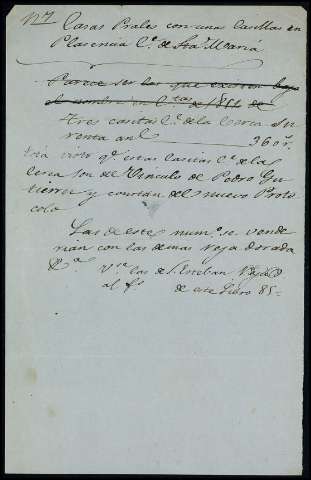 Nº 7 Casas Prales con una Casillas en
Plasencia Cª. de Sta. Maria
Parece ser las que existen bajo
el nombre en Ctas de de
Tres casitas Cª. de la Cerca Su
renta anl 360 r.
Está visto q. estas casitas Cª. de la
Cerca son del Vinculo de Pedro Gu
tierrez y constan del nuevo Proto
colo
Las de este numº. se vende
rian con las demas Reja dorada
Vse. las de S. Esteban
al fº de este Libro 85=